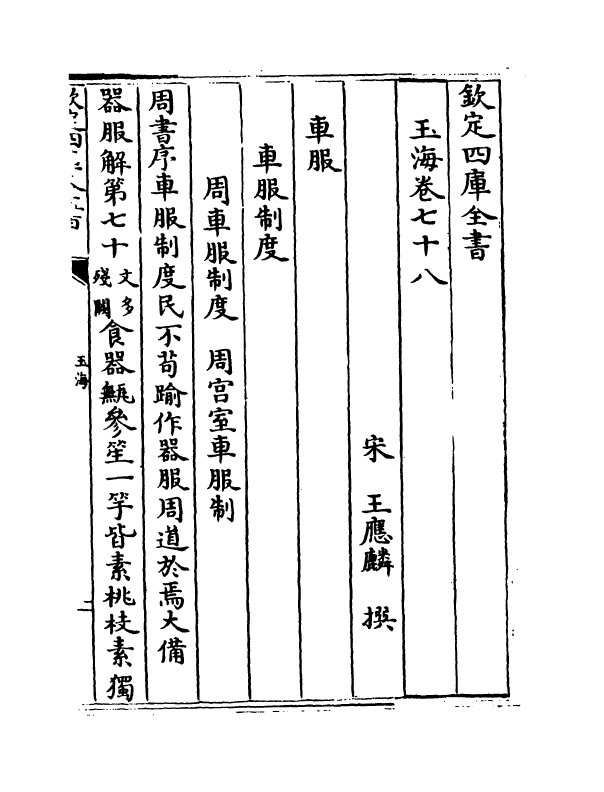 欽定四庫全書
玉海卷七十八
宋　王應麟　撰
車服
車服制度
周車服制度　周宫室車服制
周書序車服制度民不苟踰作器服周道於焉大備
器服解第七十文多殘闕食器甒參笙一竽皆素桃枝素獨
欽定四庫全書
玉海
二